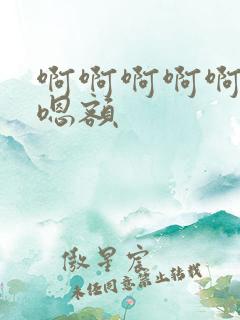 啊啊啊啊啊
嗯额
傲星宸
未经同意禁止转载